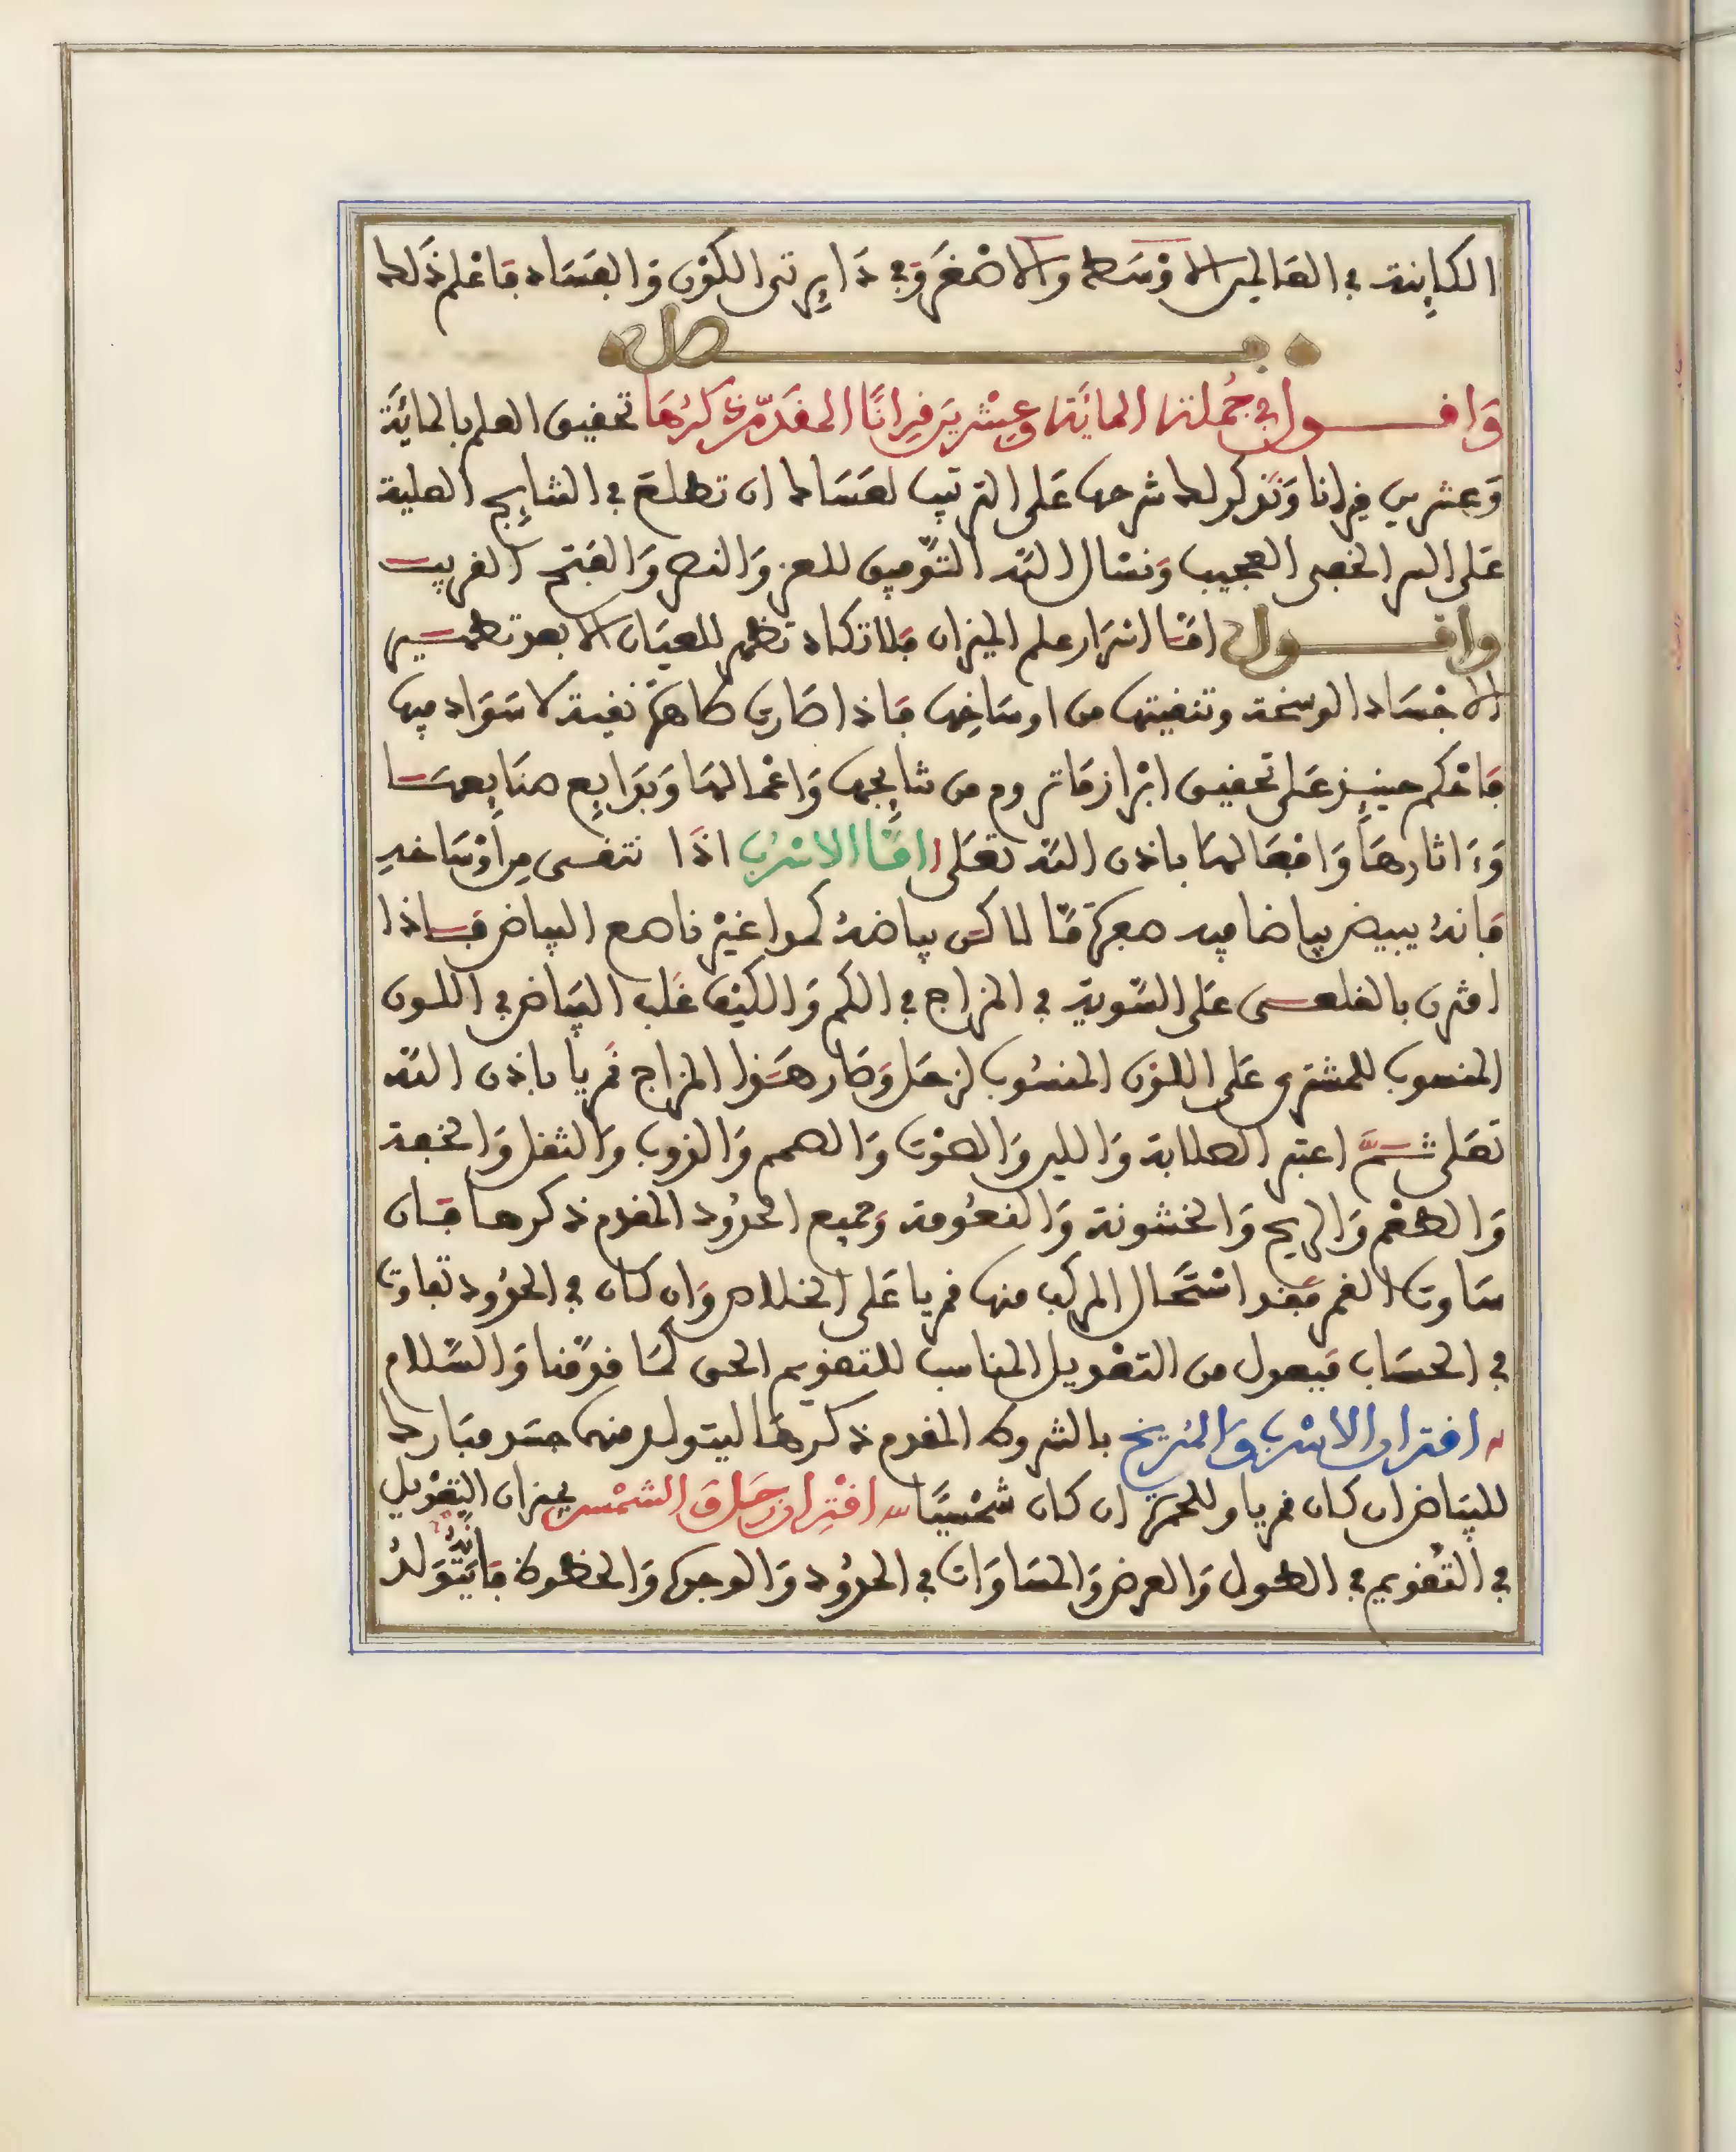 الكاينة في العالمين الاوسط والاصغر وفي دايرتي الكون والفساد فاعلم ذلك
فصل
واقول في جملة الماية وعشرين قرانا المقدم ذكرها تحقيق العلم بالماية
وعشرين قرانا ونذكر لك شرحها على الترتيب لعساك ان تطلع في النتايج العلية
على السر الخفي العجيب ونسال الله التوفيق للعز والنصر والفتح القريب
واقول اما اسرار علم الميزان فلا تكاد تظهر للعيان الا بعد تطهير
الاجساد الوسخة وتنقيتها من اوساخها فاذا صارت طاهرة نقية لا سواد فيها
فاحكم حينيذ على تحقيق ابراز ما تروم من نتايجها واعمالها وبدايع صنايعها
وءاثارها وافعالها باذن الله تعلى اما الاسرب اذا تنقى من اوساخه
فانه يبيض بياضا فيه صفرة ما لاكن بياضه كمدا غير ناصع البياض فاذا
اقترن بالقلعي على التسوية في المزاج في الكم والكيف غلب البياض في اللون
المنسوب للمشتري على اللون المنسوب لزحل وصار هذا المزاج قمريا باذن الله
تعلى ثم اعتبر الصلابة واللين والصوت والصمم والذوب والثقل والخفة
والطعم والريح والخشونة والنعومة وجميع الحدود المقدم ذكرها فان
ساوت القمر فقد استحال المركب منها قمريا على الخلاص وان كان في الحدود تفاوت
في الحساب فيعدل من التعديل المناسب للتقويم الحق كما قدمنا والسلام
اقتران الاسرب والمريخ بالشروط المقدم ذكرها ليتولد منهما جسد مبارك
للبياض ان كان قمريا وللحمرة ان كان شمسيا اقتران زحل والشمس بميزان التعديل
في التقويم في الطول والعرض والمساوات في الحدود والوجوه والحظوظ فانه يتولد